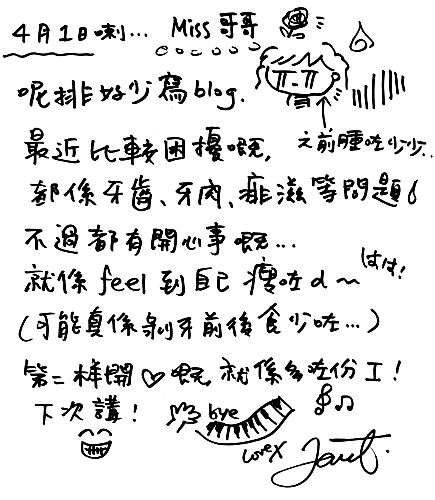 4月1日喇... Miss 哥哥
呢排好少寫blog.
最近比較困擾嘅,
之前腫咗少少..
都係牙齒、牙肉、痱滋等問題。
不過都有開心事嘅...
就係 feel 到自己瘦咗d~
はは!
(可能真係剝牙前後食少咗...)
第二樣開♡嘅, 就係多咗份工!
下次講!
bye
Love x
Janet.